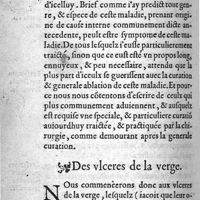 d'icelluy. Brief comme i'ay predict tout gen-
re, & espece de ceste maladie, prenant ongi-
ne de cause interne communement dicte an-
tecedente, peult estre symptome de ceste ma-
ladie. De tous lesquelz i'eusse particulierement
traicté, sinon que ce eust esté vn propos long,
ennuyeux, & peu necessaire, attendu que la
plus part d'iceulx se guerissent auec la curation
& generale ablation de ceste maladie. Et pour
ce nous nous côtenterons d'escrire de ceulx qui
plus communement aduiennent, & ausquelz
est requise vne speciale, & particuliere curatiô
auiourdhuy traictée, & practiquée par la chi-
rurgie, comme demourant apres la generale
curation.
Des vlceres de la verge.
NOus commencerons donc aux vlceres
de la verge, lesquelz (iacoit que leur o-